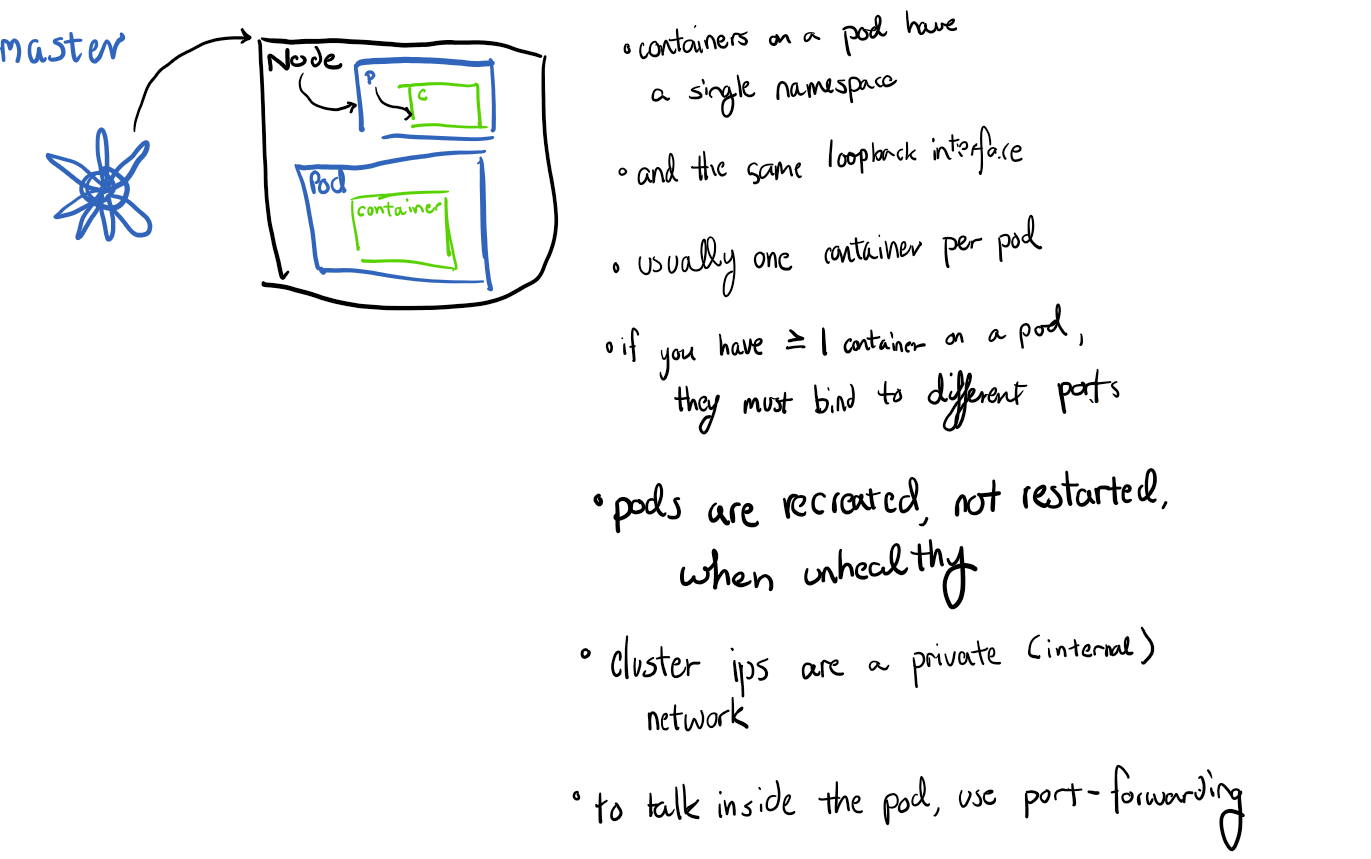 master
Node
P
C
Pod
container
• containers on a pod have
a single namespace
• and the same loopback interface
• usually one container per pod
• if you have ≥ 1 container on a pod,
they must bind to different ports
• pods are recreated, not restarted,
when unhealthy
• cluster ips are a private (internal)
network
• to talk inside the pod, use port-forwarding